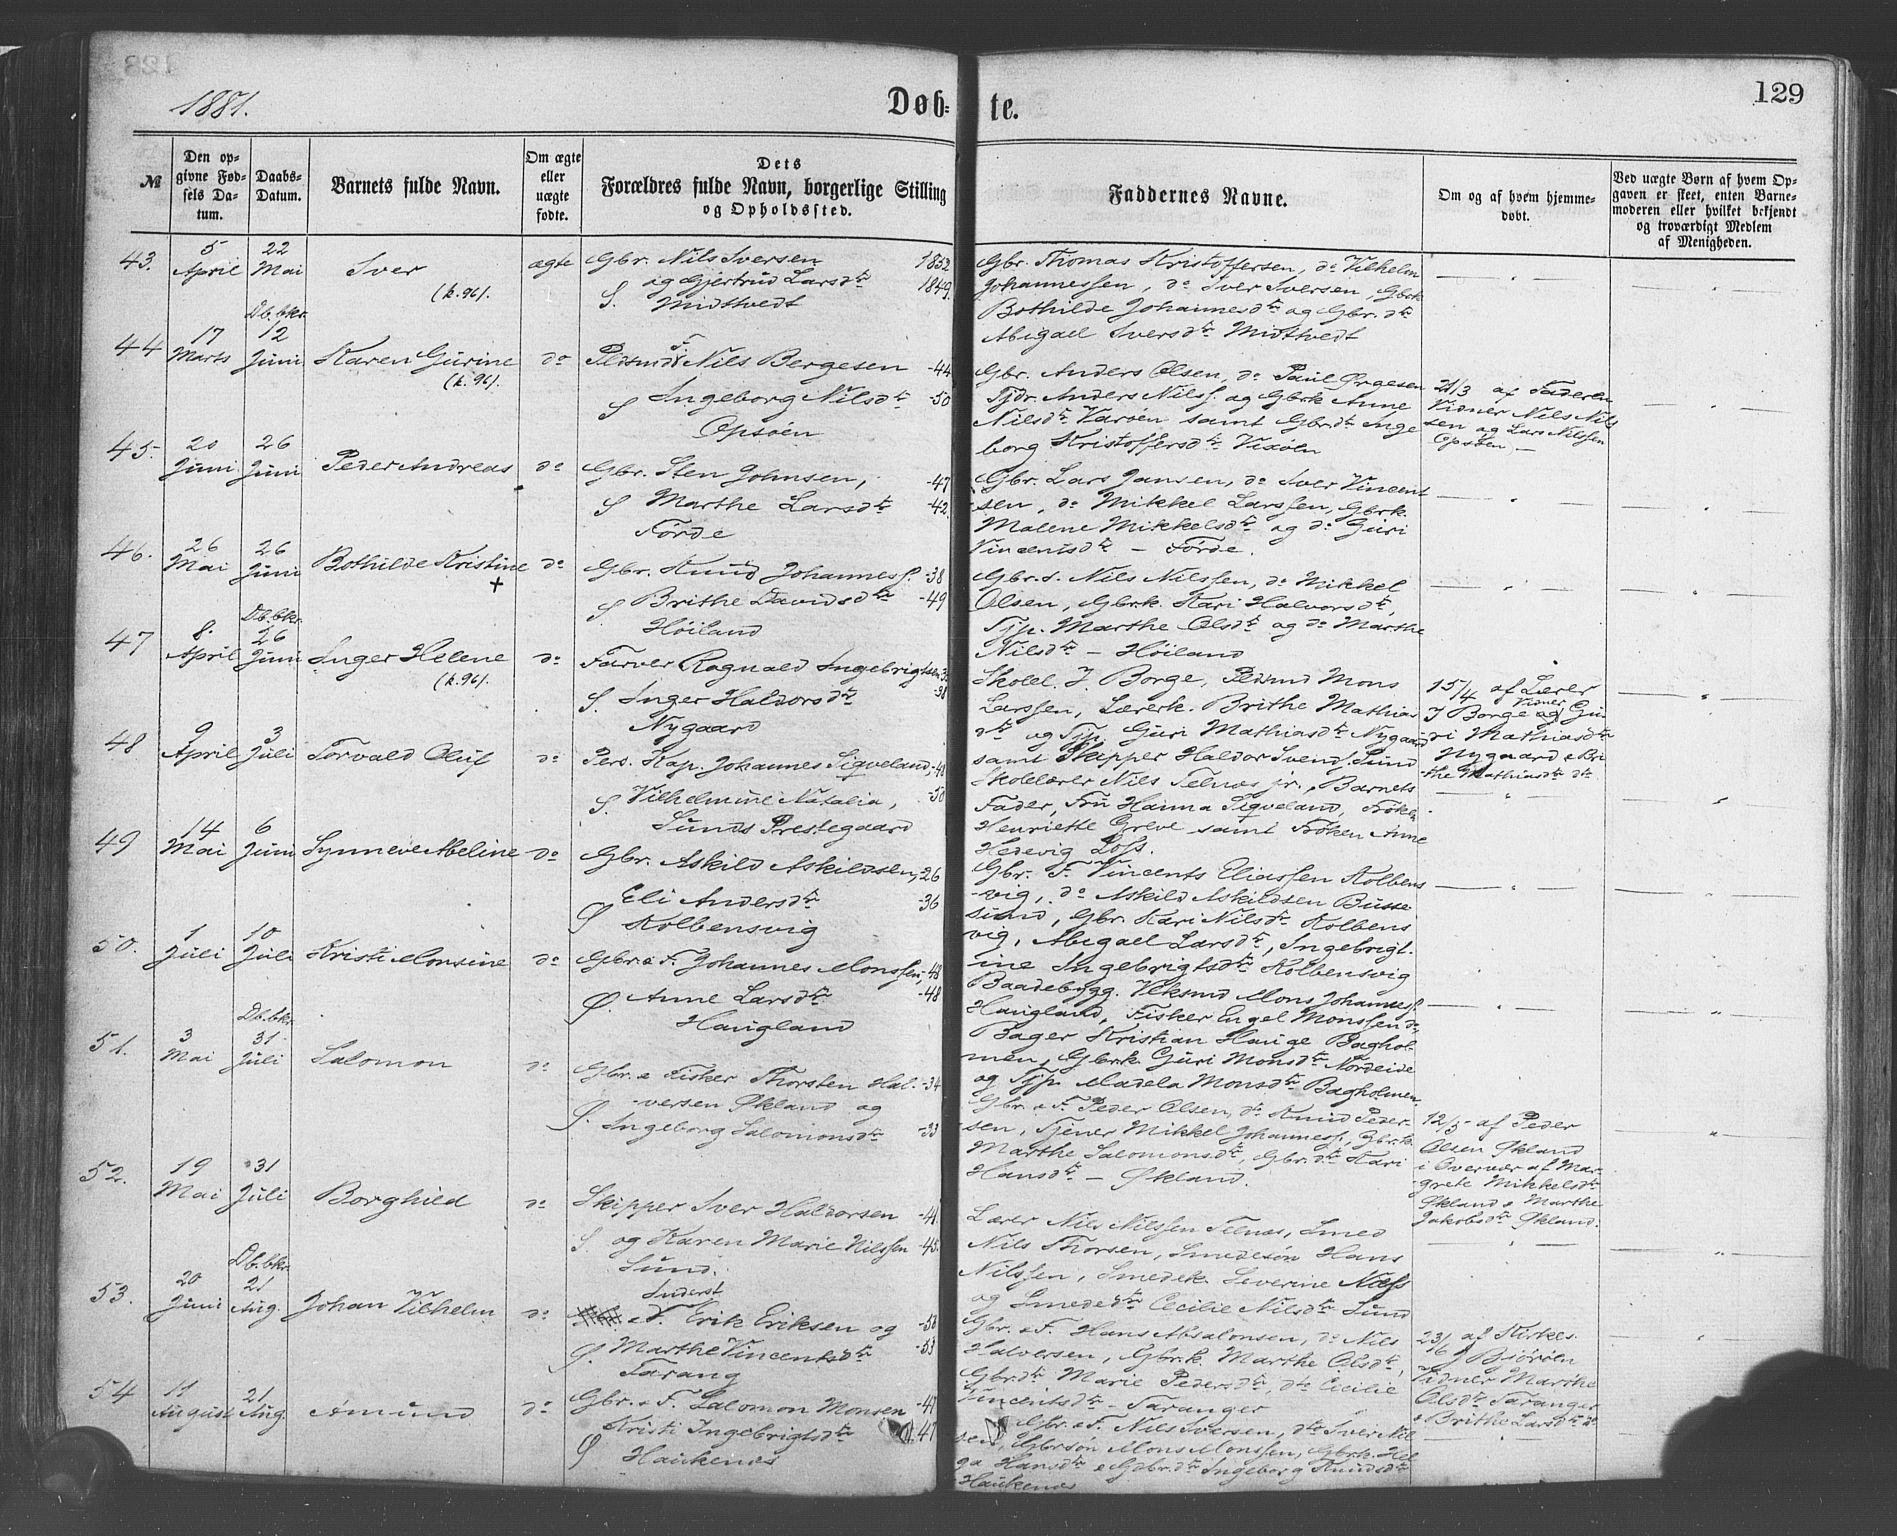 1881.
Døb-
te.
129
№
Den op-
givne Fød-
sels Da-
tum.
Daabs-
Datum.
Barnets fulde Navn.
Om ægte
eller
uægte
fødte.
Dets
Forældres fulde Navn, borgerlige Stilling
og Opholdssted.
Faddernes Navne.
Om og af hvem hjemme-
døbt.
Ved uægte Børn af hvem Op-
gaven er skeet, enten Barne-
moderen eller hvilket bekjendt
og troværdigt Medlem
af Menigheden.
43.
5
April
22
Mai
Iver
(k. 96).
ægte
Gbr. Nils Iversen 1852
og Gjertrud Larsdtr 1849
S. Midttvedt
Gbr. Thomas Kristoffersen, do Vilhelm
Johannessen, do Iver Iversen, Gbrk
Bothilde Johannesdtr og Gbr. dtr
Abigael Iversdtr Midttvedt
44
17
Marts
Db. bkr.
12
Juni
Karen Gurine
(k. 96).
do
F. Nils Bergesen -44
S Ingeborg Nilsdtr -50
Opsøen
Gbr. Anders Olsen, do Paul Ørgesen
Tjdr. Anders Nilss. og Gbrk Anne
Nilsdtr Varøen samt Gbrdtr Inge
borg Kristoffersdtr Vixøen
21/3 af Faderen
Vidner Nils Nils
sen og Lars Nilssen
Opsøen. —
45.
20
Juni
26
Juni
Peder Andreas
do
Gbr. Sten Johnsen, -47
S Marthe Larsdtr -42.
Førde
Gbr. Lars Jansen, do Iver Vincent
sen, do Mikkel Larssen, Gbrk.
Malene Mikkelsdtr og do Guri
Vincentsdtr — Førde.
46.
26
Mai
26
Juni
Bothilde Kristine
+
do
Gbr. Knud Johanness. -38
S Brithe Davidsdtr -49
Høiland
Gbr. s. Nils Nilssen, do Mikkel
Olsen, Gbrk. Kari Halvorsdtr,
Tjp. Marthe Olsdtr og do Marthe
Nilsdtr — Høiland
47
8.
April
Db. bkr.
26
Juni
Inger Helene
(k. 96).
do
Farver Ragnald Ingebrigtsen
S. Inger Haldorsdtr -38
Nygaard
Skolel. J. Borge, Mons
Larssen, Lærerk. Brithe Mathias
dtr og Tjp. Guri Mathiasdtr Nygaard
samt Skipper Haldor Svends. Sund
15/4 af Lærer
Vidner
J Borge og Gu
ri Mathiasdtr
Nygaard & Bri
the Mathiasdtr do
48
9
April
3
Juli
Torvald Oluf
do
Pers. Kap. Johannes Siqveland, -48
S Vilhelmine Natalia, -50
Sunds Prestegaard
Skolelærer Nils Telnæs jr., Barnets
Fader, Fru Hanna Siqveland, Frøken
Henriette Greve samt Frøken Anne
Hedevig Loss.
49
14
Mai
6
Juni
Synneve Abeline
do
Gbr. Askild Askildsen, -26
Eli Andersdtr -36
Ø Kolbensvig
Gbr. F. Vincents Eliassen Kolbens
-vig, do Askild Askildsen Busse
sund, Gbr. Kari Nilsdtr Kolbens
vig, Abigael Larsdtr, Ingebrigt
ine Ingebrigtsdtr Kolbensvig
50.
1
Juli
10
Juli
Kristi Monsine
do
Gbr. & F. Johannes Monssen, -48
Ø. Anne Larsdtr -48
Haugland
Baadebygg. Mons Johanness.
Haugland, Fisker Engel Monssen do
Bager Kristian Hauge Baghol-
men, Gbrk. Guri Monsdtr Nordeide
og Tjp. Madela Monsdtr Bagholmen.
51.
3
Mai
Db. bkr.
31.
Juli
Salomon
do
Gbr. & Fisker Thorsten Hal- -34
-versen Økland og
Ø. Ingeborg Salomonsdtr -33
Gbr. & F. Peder Olsen, do Knud Peder-
sen, Tjener Mikkel Johanness., Gbr. k.
Marthe Salomonsdtr, Gbr. dtr Kari
Hansdtr — Økland.
12/5 af Peder
Olsen Økland
i Overvær af Mar-
grete Mikkelsdtr
Økland & Marthe
Jakobsdtr Økland.
52.
19
Mai
31
Juli
Borghild
do
Skipper Iver Haldorsen -41.
S og Karen Marie Nilssen -45.
Sund.
Lærer Nils Nilssen Telnæs, Smed
Nils Thorsen, Smedesøn Hans
Nilssen, Smedek. Severine Næss
og Smededtr Cecilie Nilsdtr Sund
53.
20
Juni
Db. bkr.
21
Aug.
Johan Vilhelm
do
Inderst
& F. Erik Eriksen og -58
Ø. Marthe Vincentsdtr -53
Tarang
Gbr. & F. Hans Absalonsen, do Nils
Halversen, Gbr. k. Marthe Olsdtr,
Gbr. dtr Marie Pedersdtr, dtr Cecilie
Vincentsdtr — Taranger
23/6 af Kirkes.
J Bjørøen
Vidner Marthe
Olsdtr Taranger
& Brithe Larsdtr do
54
11
August
21
Aug.
Amund
do
Gbr. & F. Salomon Monsen -41
Kristi Ingebrigtsdtr 47
Ø Haukenæs
Gbr. & F. Nils Iversen, do Iver Nil
sen, Gbrsøn Mons Monssen, Gbrk. Hel
ga Hansdtr & Gbr. dtr Ingeborg Knudsdtr
Haukenæs